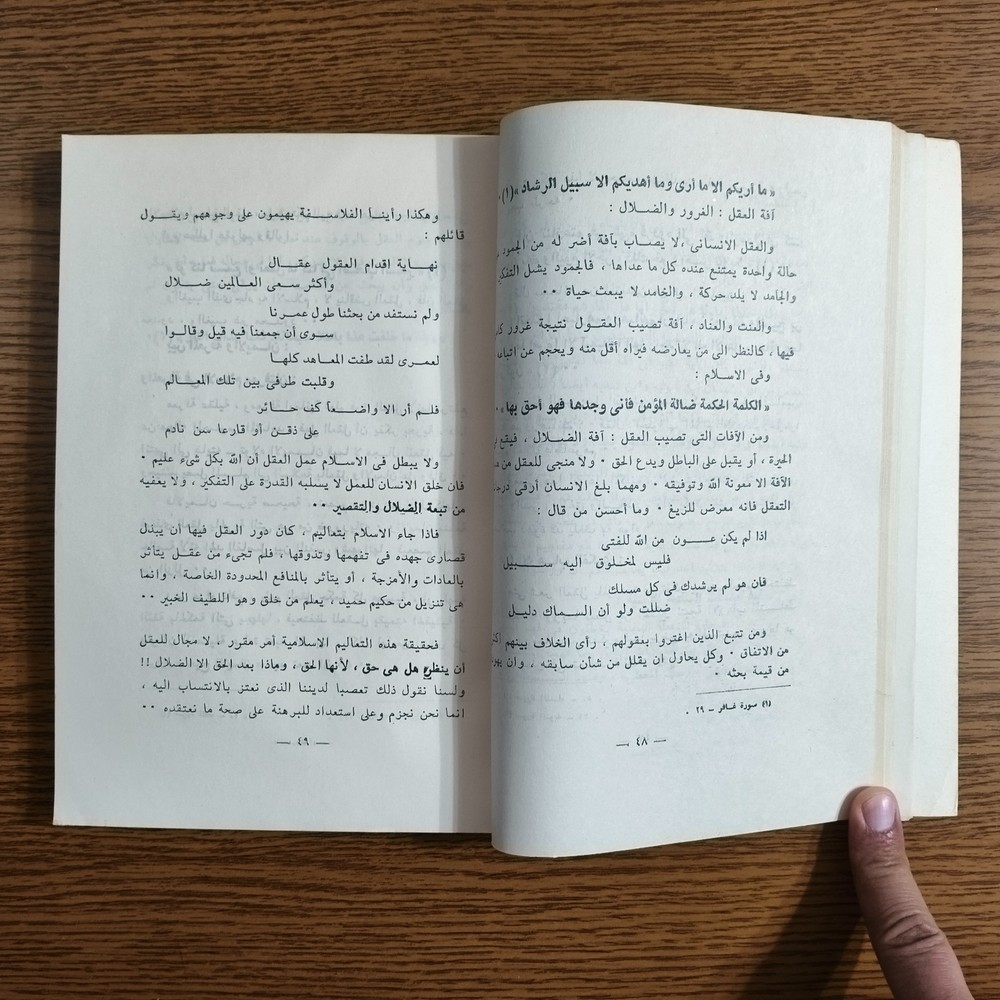 « ما أريكم الا ما أرى وما أهديكم الا سبيل الرشاد »(١) ٠
آفة العقل : الغرور والضلال :
والعقل الانسانى ،لا يصاب بآفة أضر له من الجمود
حالة واحدة يمتنع عنده كل ما عداها ، فالجمود يشل
والجامد لا يلد حركة ، والخامد لا يبعث حياة ٠٠
والعنت والعناد ، آفة تصيب العقـول نتيجة غرور
فيها ، كالنظر الى من يعارضه فيراه أقل منه ويحجم عن
وفى الاسلام :
« الكلمة الحكمة ضالة المؤمن فأنى وجدها فهو أحق بها » ٠
ومن الآفات التى تصيب العقل : آفة الضـلال ، فيقع
الحيرة ، أو يقبل على الباطل ويدع الحق ٠ ولا منجى للعقل من
الآفة الا معونة الله وتوفيقه ٠ ومهما بلغ الانسان أرقى
التعقل فانه معرض للزيغ ٠ وما أحسن من قال :
اذا لم يكن عـــون من الله للفتى
فليس لمخلـوق اليه ســـبيل
فان هو لم يرشدك فى كل مسلك
ضللت ولو أن السماك دليـل
ومن تتبع الذين اغتروا بعقولهم ، رأى الخلاف بينهم
من الاتفاق ٠ وكل يحاول أن يقلل من شأن سابقه ، وان
من قيمة بحثه ٠
(١) سورة غـافر ــ ٢٩ ٠
— ٤٨ —
وهكذا رأينـا الفلاسـفة يهيمون على وجوههم ويقـول
قائلهم :
نهـاية اقدام العقول عقـال
وأكثر سعى العـالمين ضـلال
ولم نستفد من بحثنا طول عمـرنا
سـوى أن جمعنا فيه قيل وقالـوا
لعمـرى لقد طفت المعـاهد كلهـا
وقلبت طرفى بين تلك المعـالم
فلـم أر الا واضعـا كف حـائر
على ذقـن أو قارعا سن نادم
ولا يبطل فى الاسلام عمل العقل أن الله بكل شىء عليم ٠
فان خلق الانسان للعمل لا يسلبه القدرة على التفكير ، ولا يعفيه
من تبعة الضلال والتقصير ٠٠
فاذا جاء الاسلام بتعاليم ، كان دور العقل فيها أن يبذل
قصارى جهده فى تفهمها وتذوقها ، فلم تجىء من عقـل يتأثر
بالعادات والأمزجة ، أو يتأثر بالمنافع المحدودة الخاصة ، وانما
هى تنزيل من حكيم حميد ، يعلم من خلق وهو اللطيف الخبير ٠٠
فحقيقة هذه التعاليم الاسلامية أمر مقرر ، لا مجال للعقل
أن ينظر هل هى حق ، لأنها الحق ، وماذا بعد الحق الا الضلال !!
ولسنا نقول ذلك تعصبا لديننا الذى نعتز بالانتساب اليه ،
انما نحن نجزم وعلى استعداد للبرهنة على صحة ما نعتقده ٠٠
— ٤٩ —